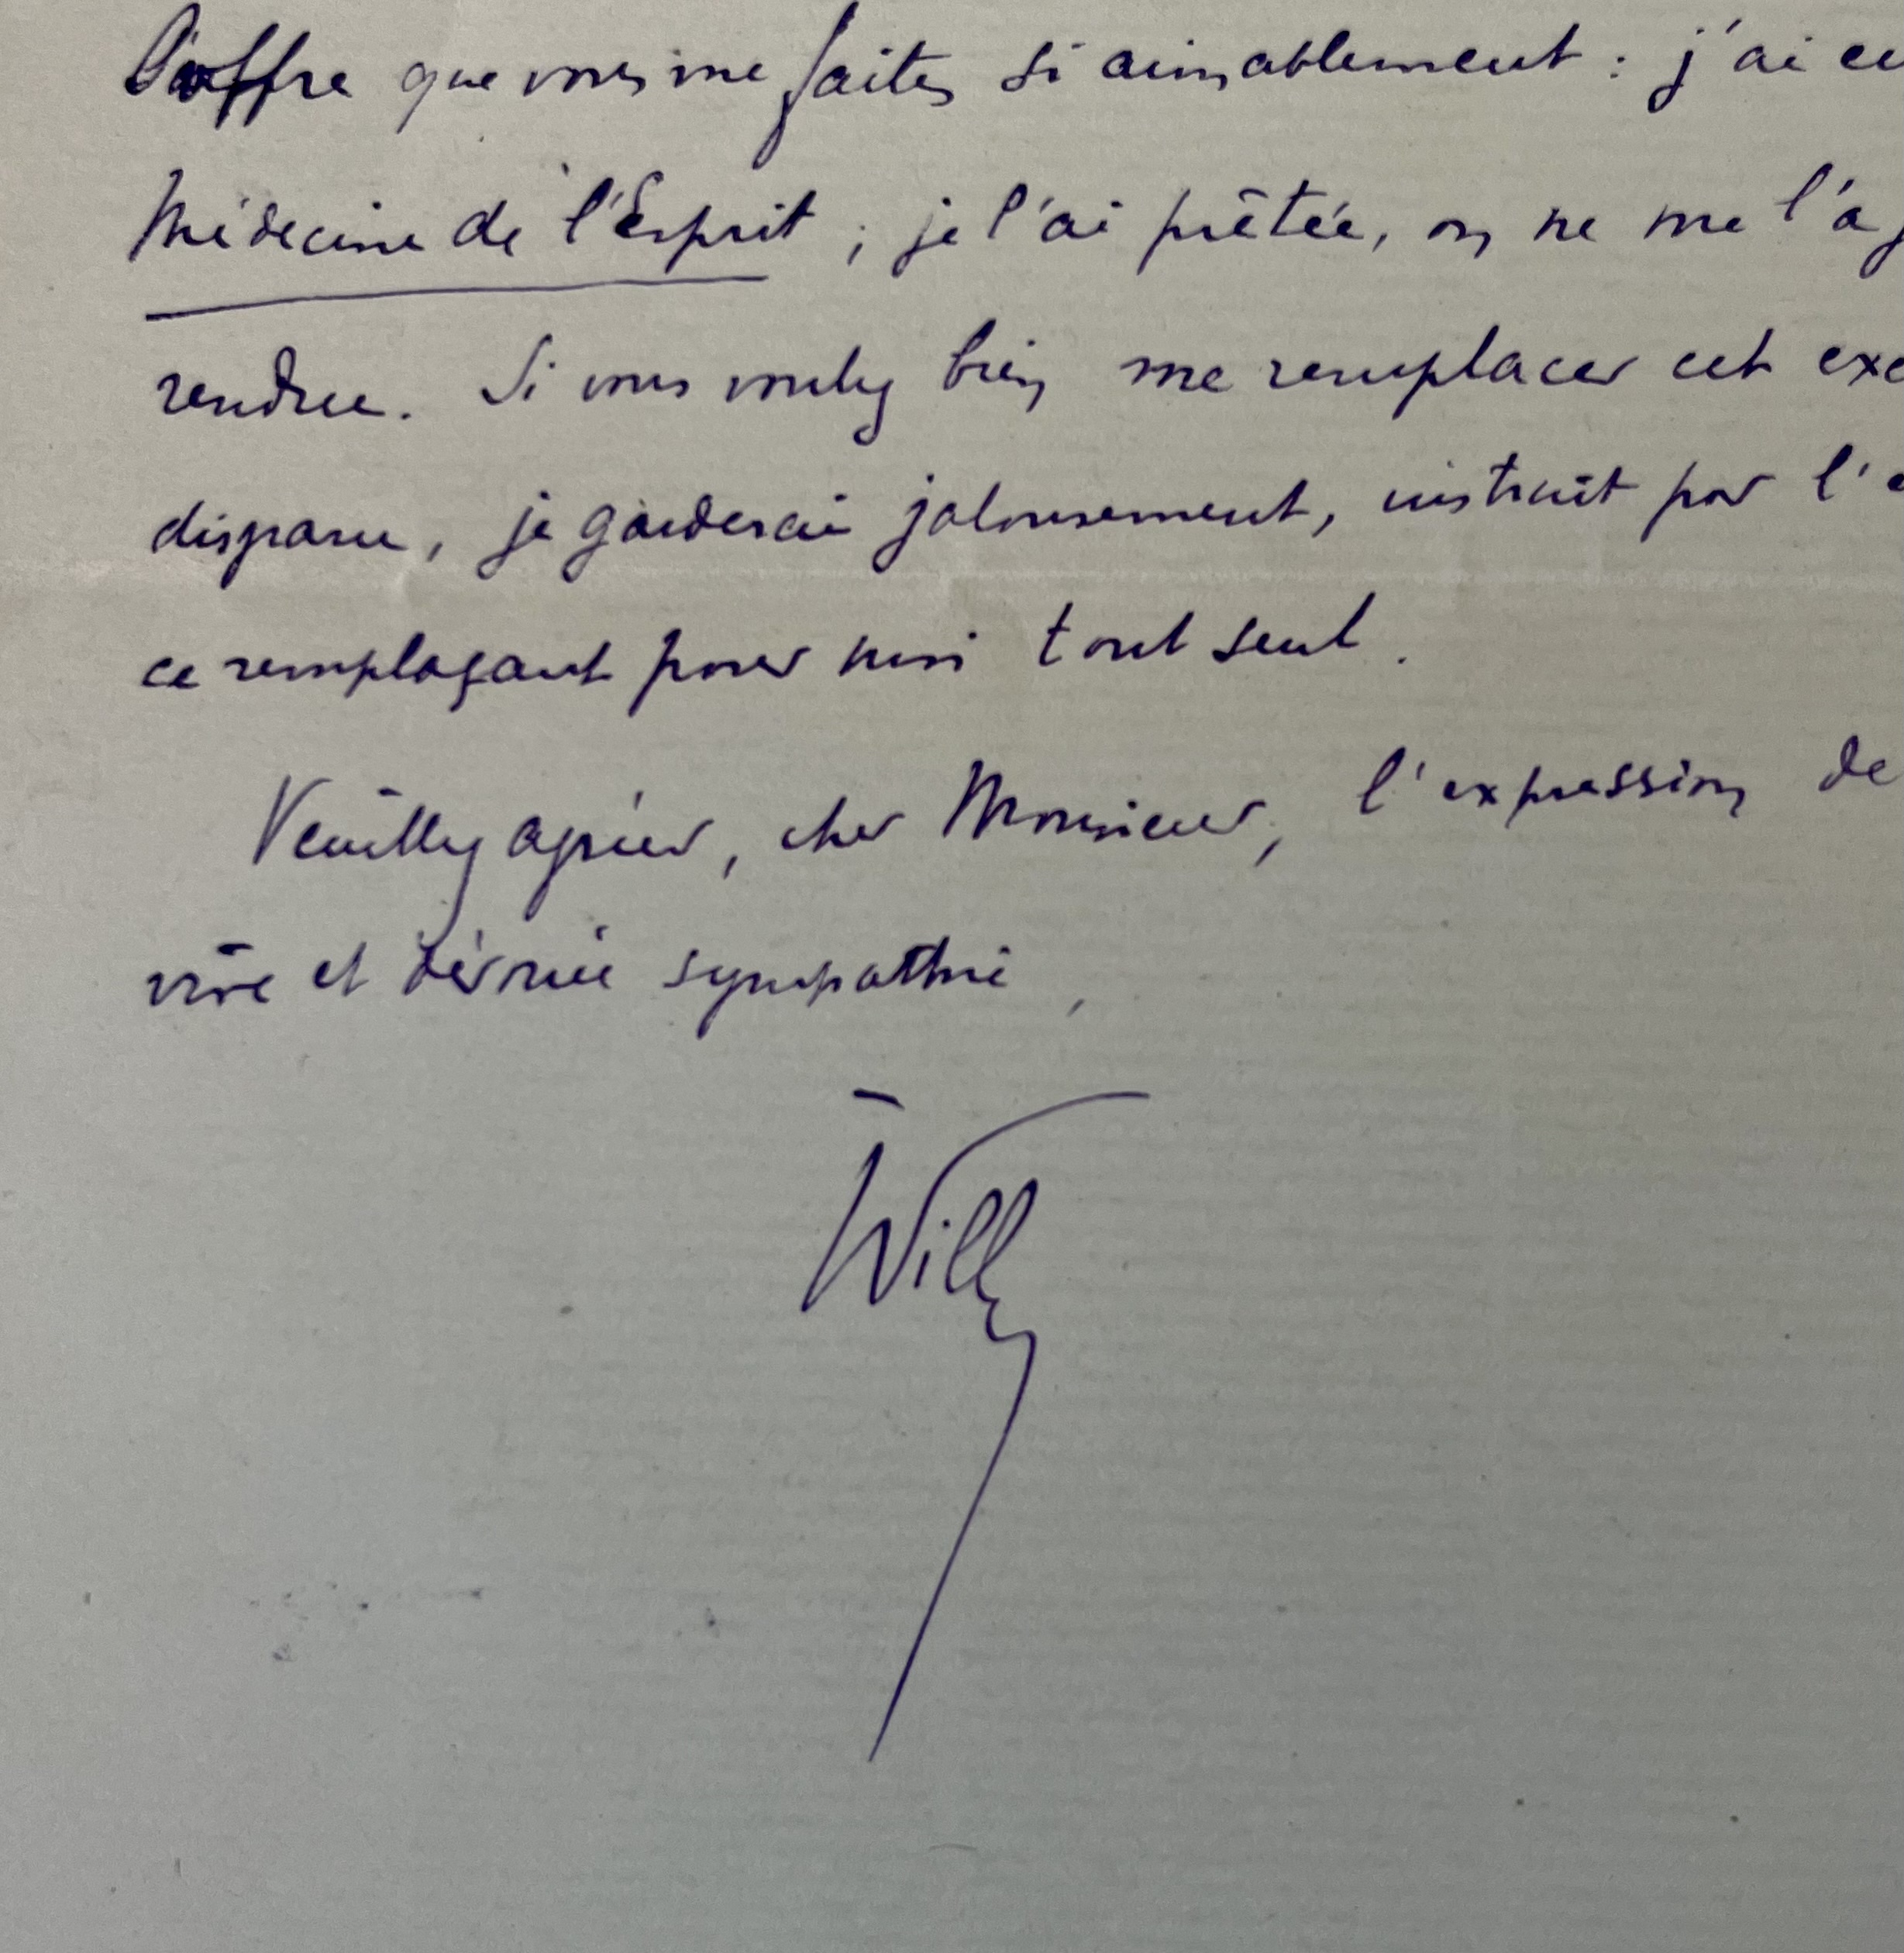 L'offre que vous me faites si aimablement : j'ai eu
Médecine de l'Esprit ; je l'ai prêtée, on ne me l'a
rendue. Si vous voulez bien me remplacer cet exe
disparu, je garderai jalousement, instruit par l'e
ce remplaçant pour moi tout seul.
Veuillez agréer, cher Monsieur, l'expression de
vive et dévouée sympathie,
Willy